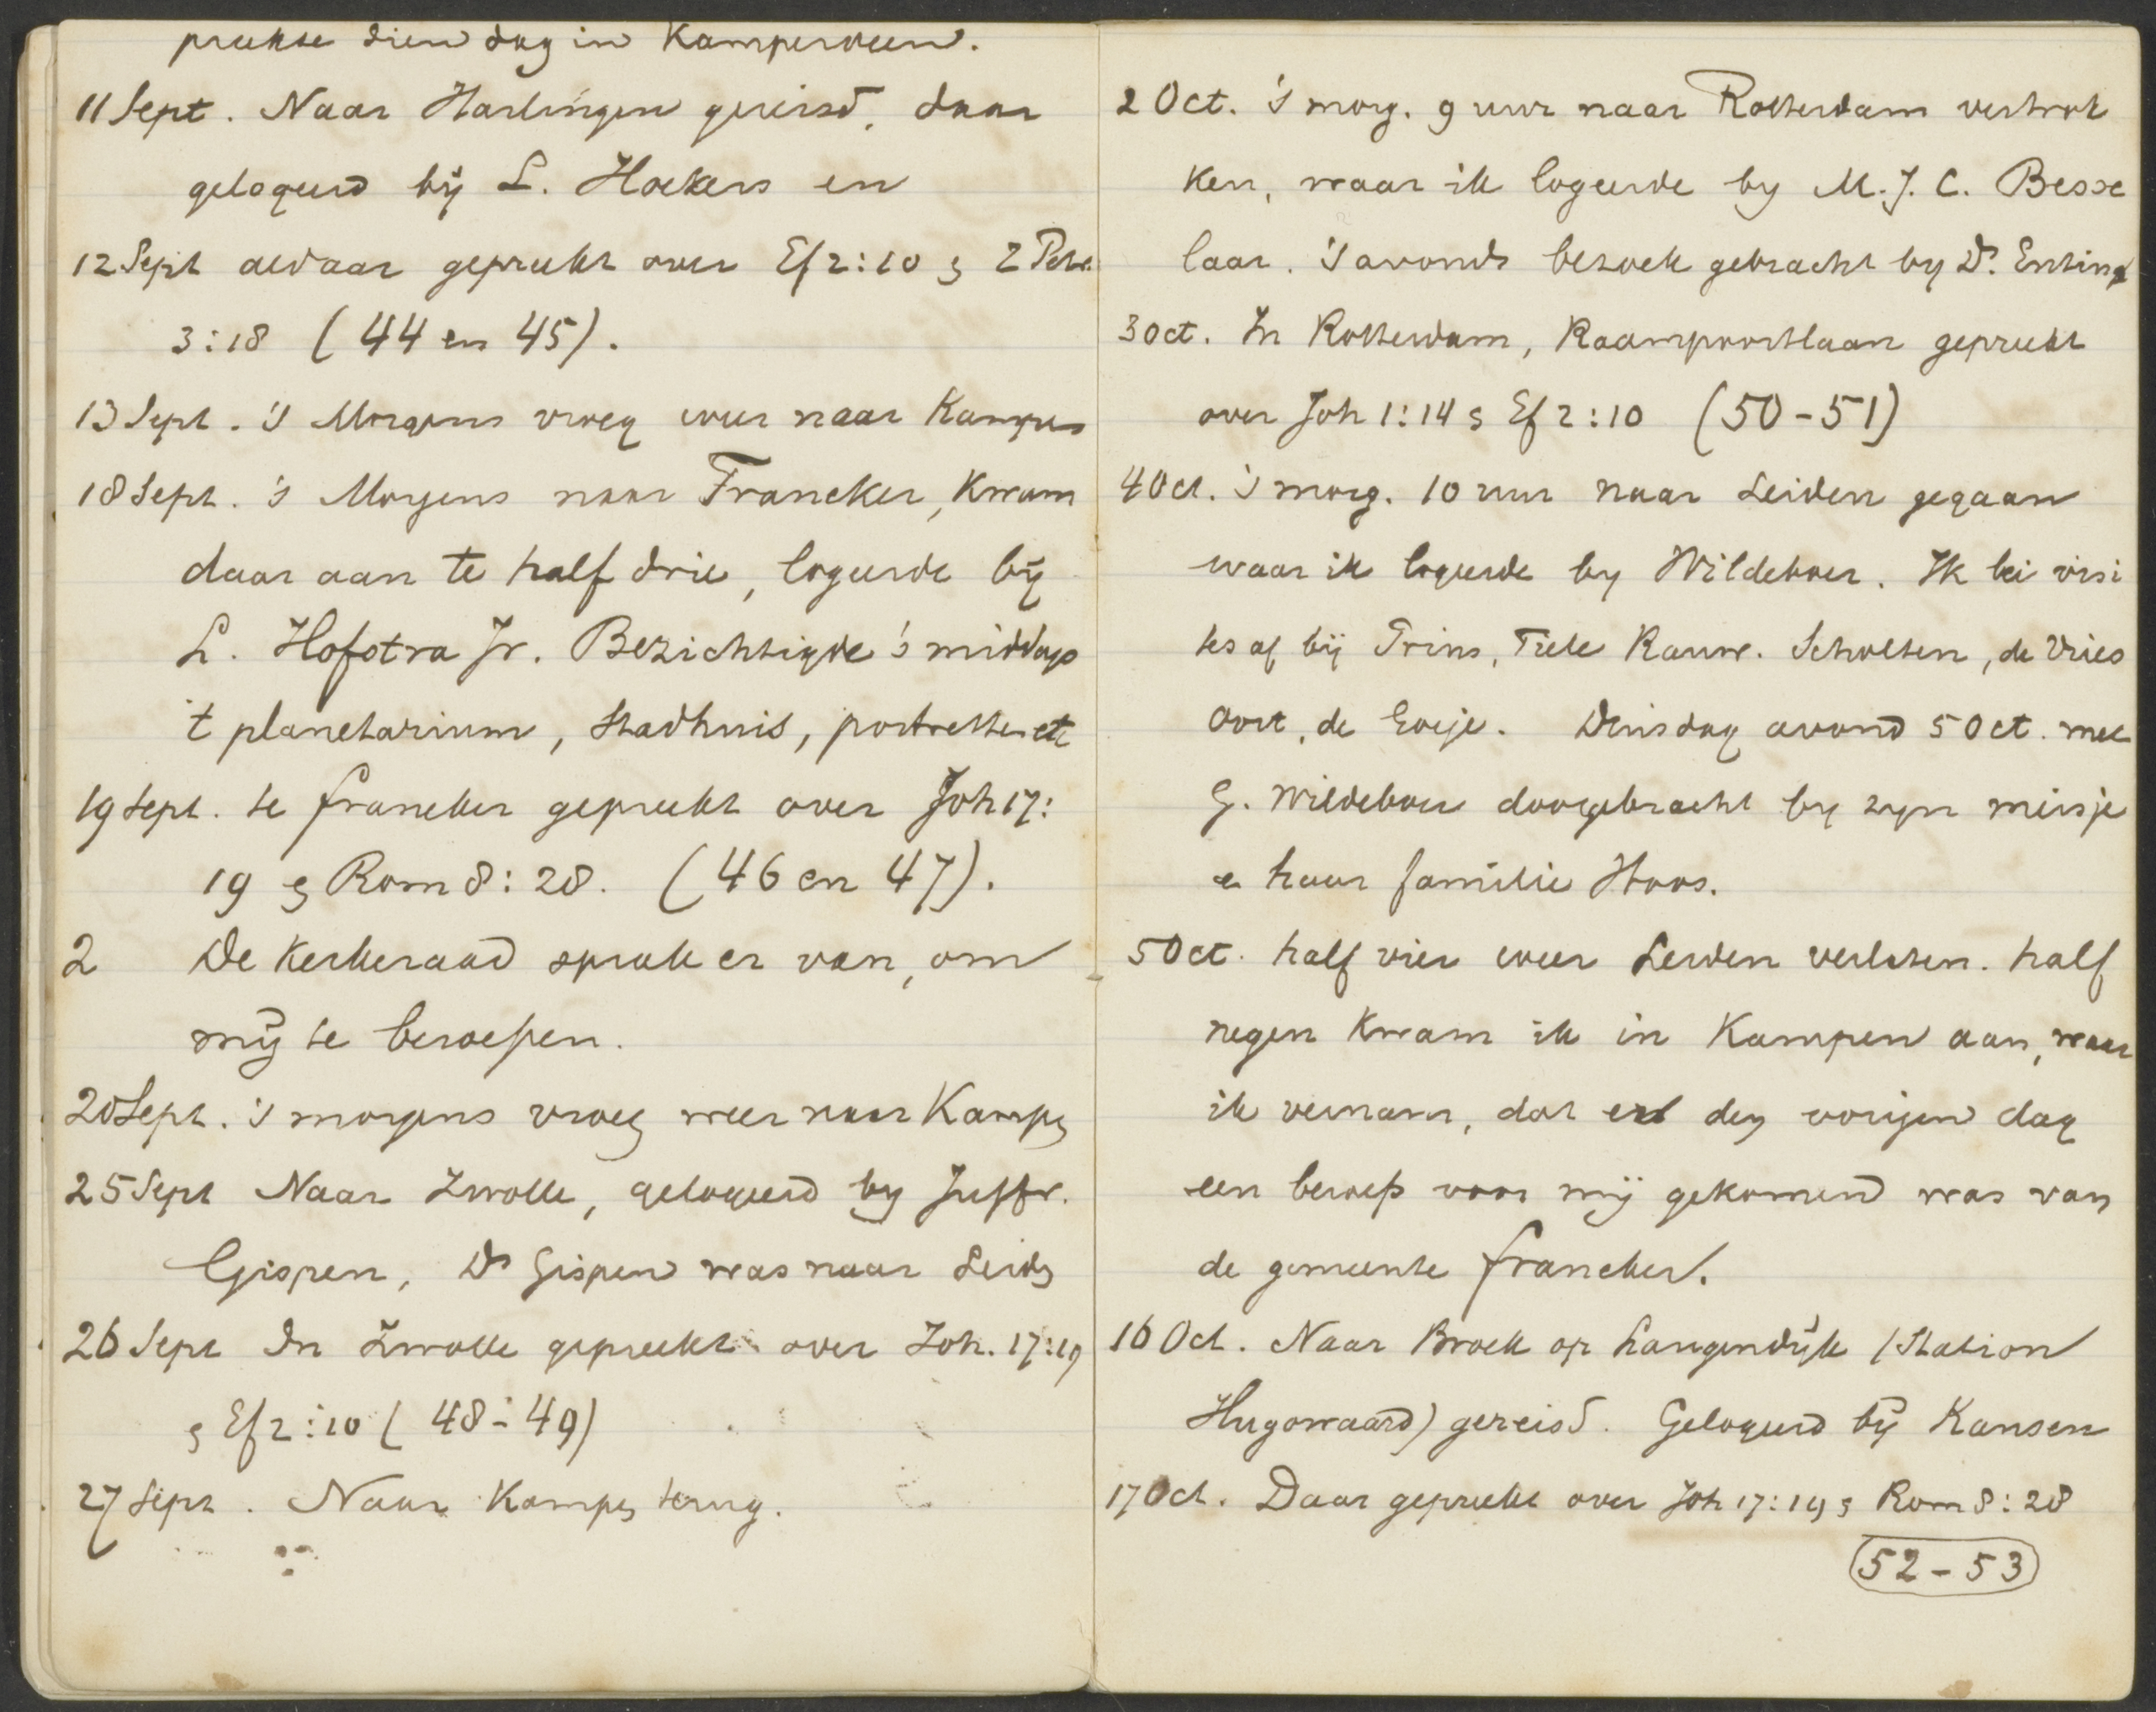 preekte dien dag in Kamperveen.
11 Sept. Naar Harlingen gereisd, daar
gelogeerd bij L. Hoekers en
12 Sept aldaar gepreekt over Ef 2:10 en 2 Petr.
3:18 (44 en 45).
13 Sept. 's Morgens vroeg weer naar Kampen
18 Sept. 's Morgens naar Franeker, kwam
daar aan te half drie, logeerde bij
L. Hofstra Jr. Bezichtigde 's middags
't planetarium, stadhuis, portretten etc
19 Sept. te Franeker gepreekt over Joh 17:
19 en Rom 8:28. (46 en 47).
2 De kerkeraad sprak er van, om
mij te beroepen.
20 Sept. 's morgens vroeg weer naar Kampen
25 Sept Naar Zwolle, gelogeerd by Juffr.
Gispen, Ds Gispen was naar Leiden
26 Sept In Zwolle gepreekt over Joh. 17:19
en Ef 2:10 (48-49)
27 Sept. Naar Kampen terug.
2 Oct. 's morg. 9 uur naar Rotterdam vertrok
ken, waar ik logeerde by M.J.C. Besse
laar. 's avonds bezoek gebracht by Ds. Entink
3 Oct. In Rotterdam, Raampoortlaan gepreekt
over Joh 1:14 en Ef 2:10 (50-51)
4 Oct. 's morg. 10 uur naar Leiden gegaan
waar ik logeerde by Wildeboer. Ik lei visi
tes af bij Prins, Tiele Rauw. Scholten, de Vries
Oort, de Goeje. Dinsdag avond 5 Oct. met
G. Wildeboer doorgebracht by zyn meisje
en haar familie Hoos.
5 Oct. half vier weer Leiden verlaten. half
negen kwam ik in Kampen aan, waar
ik vernam, dat er den vorigen dag
een beroep voor mij gekomen was van
de gemeente Franeker.
16 Oct. Naar Broek op Langendijk (Station
Hugowaard) gereisd. Gelogeerd bij Kansen
17 Oct. Daar gepreekt over Joh 17:19 en Rom 8:28
52-53